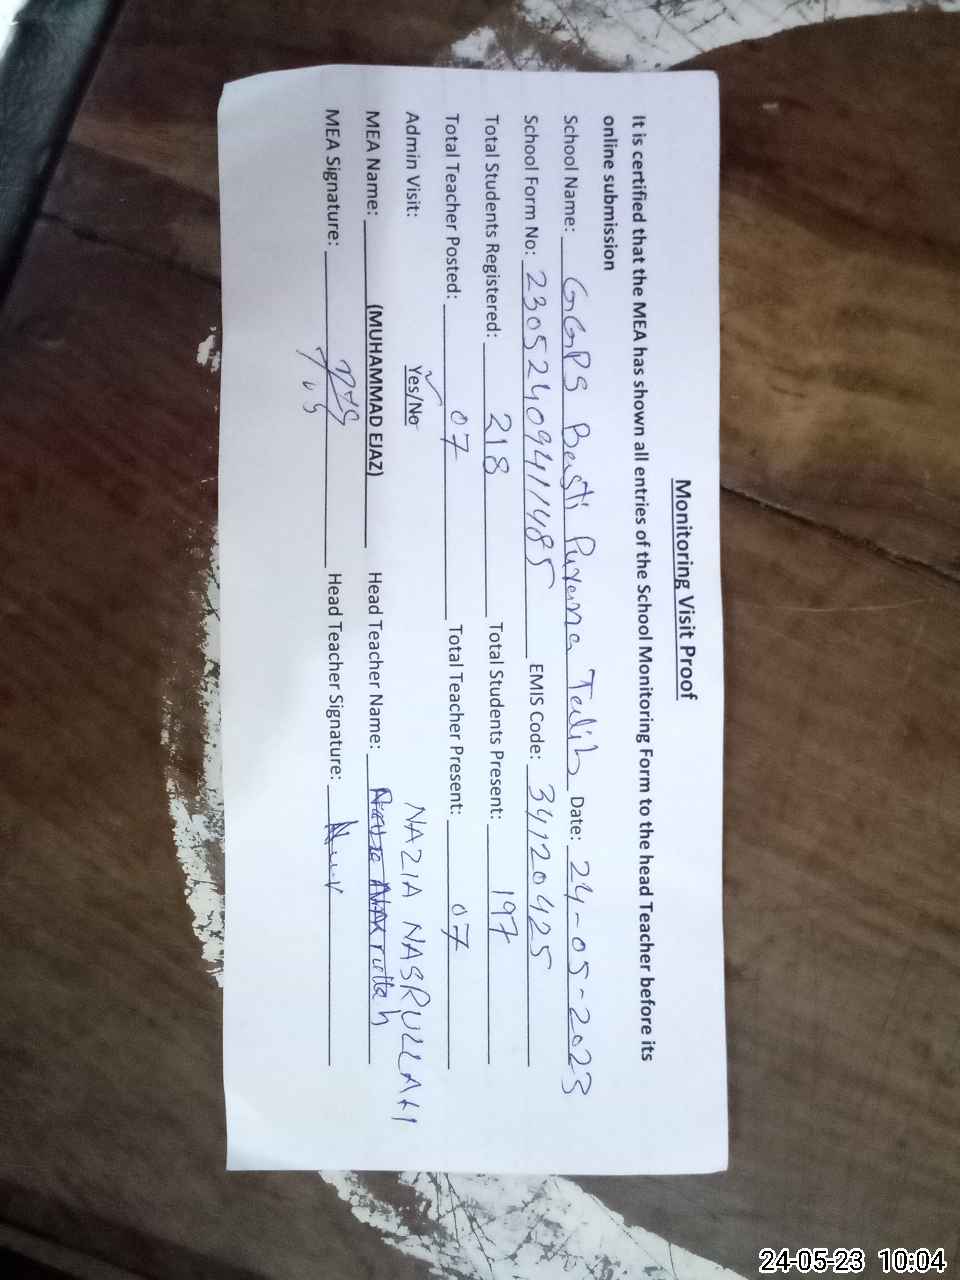 Monitoring Visit Proof
It is certified that the MEA has shown all entries of the School Monitoring Form to the head Teacher before its
online submission
School Name: GGPS Basti Date: 24-05-2023
School Form No: 23052409411485 EMIS Code: 34120425
Total Students Registered: 218 Total Students Present: 197
Total Teacher Posted: 07 Total Teacher Present: 07
Admin Visit: Yes/No
NAZIA NASRULLAH
MEA Name: (MUHAMMAD EJAZ) Head Teacher Name:
MEA Signature: Head Teacher Signature:
24-05-23 10:04